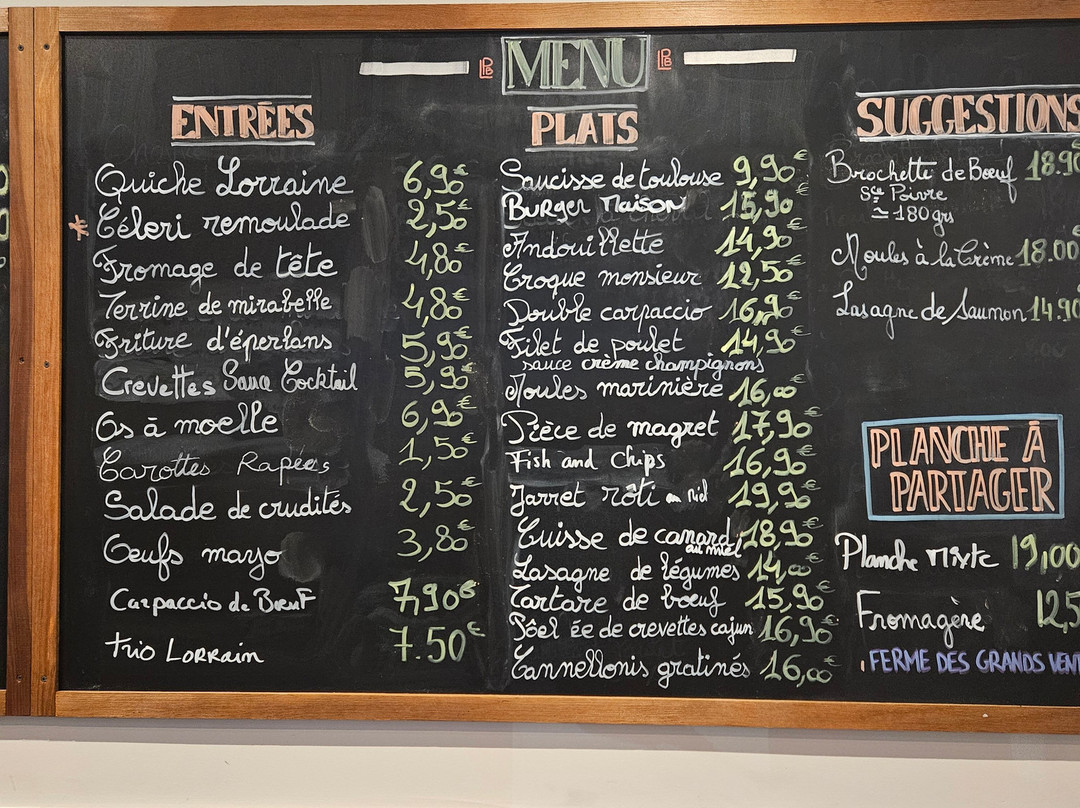 MENU
ENTRÉES
Quiche Lorraine 6,90€
* Céleri remoulade 2,50€
Fromage de tête 4,80€
Terrine de mirabelle 4,80€
Friture d'éperlans 5,90€
Crevettes Sauce Cocktail 5,90€
Os à moelle 6,90€
Carottes Rapées 1,50€
Salade de crudités 2,50€
Oeufs mayo 3,80€
Carpaccio de Bœuf 7,90€
trio Lorrain 7.50€
PLATS
Saucisse de toulouse 9,90€
Burger Maison 15,90€
Andouillette 14,90€
Croque monsieur 12,50€
Double carpaccio 16,90€
Filet de poulet 14,90€
sauce crème champignons
Moules marinière 16,00€
Pièce de magret 17,90€
Fish and Chips 16,90€
Jarret rôti au miel 19,90€
Cuisse de canard 18,90€
au miel
Lasagne de légumes 14,00€
Tartare de bœuf 15,90€
Pôêl ée de crevettes cajun 16,90€
Cannellonis gratinés 16,00€
SUGGESTIONS
Brochette de Bœuf 18.90
Sce Poivre
≃ 180 grs
Moules à la Crème 18.00€
Lasagne de Saumon 14.90
PLANCHE À
PARTAGER
Planche Mixte 19,00
Fromagère 12,5
FERME DES GRANDS VENT